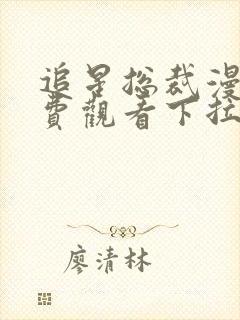 追星总裁漫
费觀看下拉
廖清林